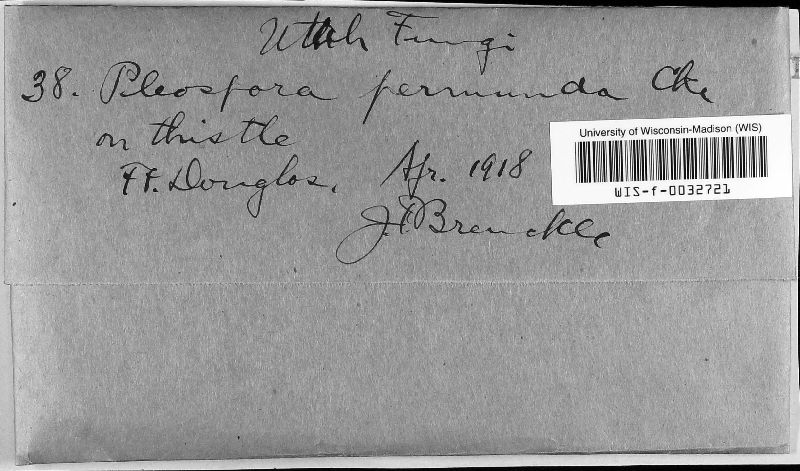 Utah Fungi
38. Pleospora permunda Cke
on thistle
Ft. Douglas, Apr. 1918
J.F. Brenckle
University of Wisconsin-Madison (WIS)
WIS-f-0032721